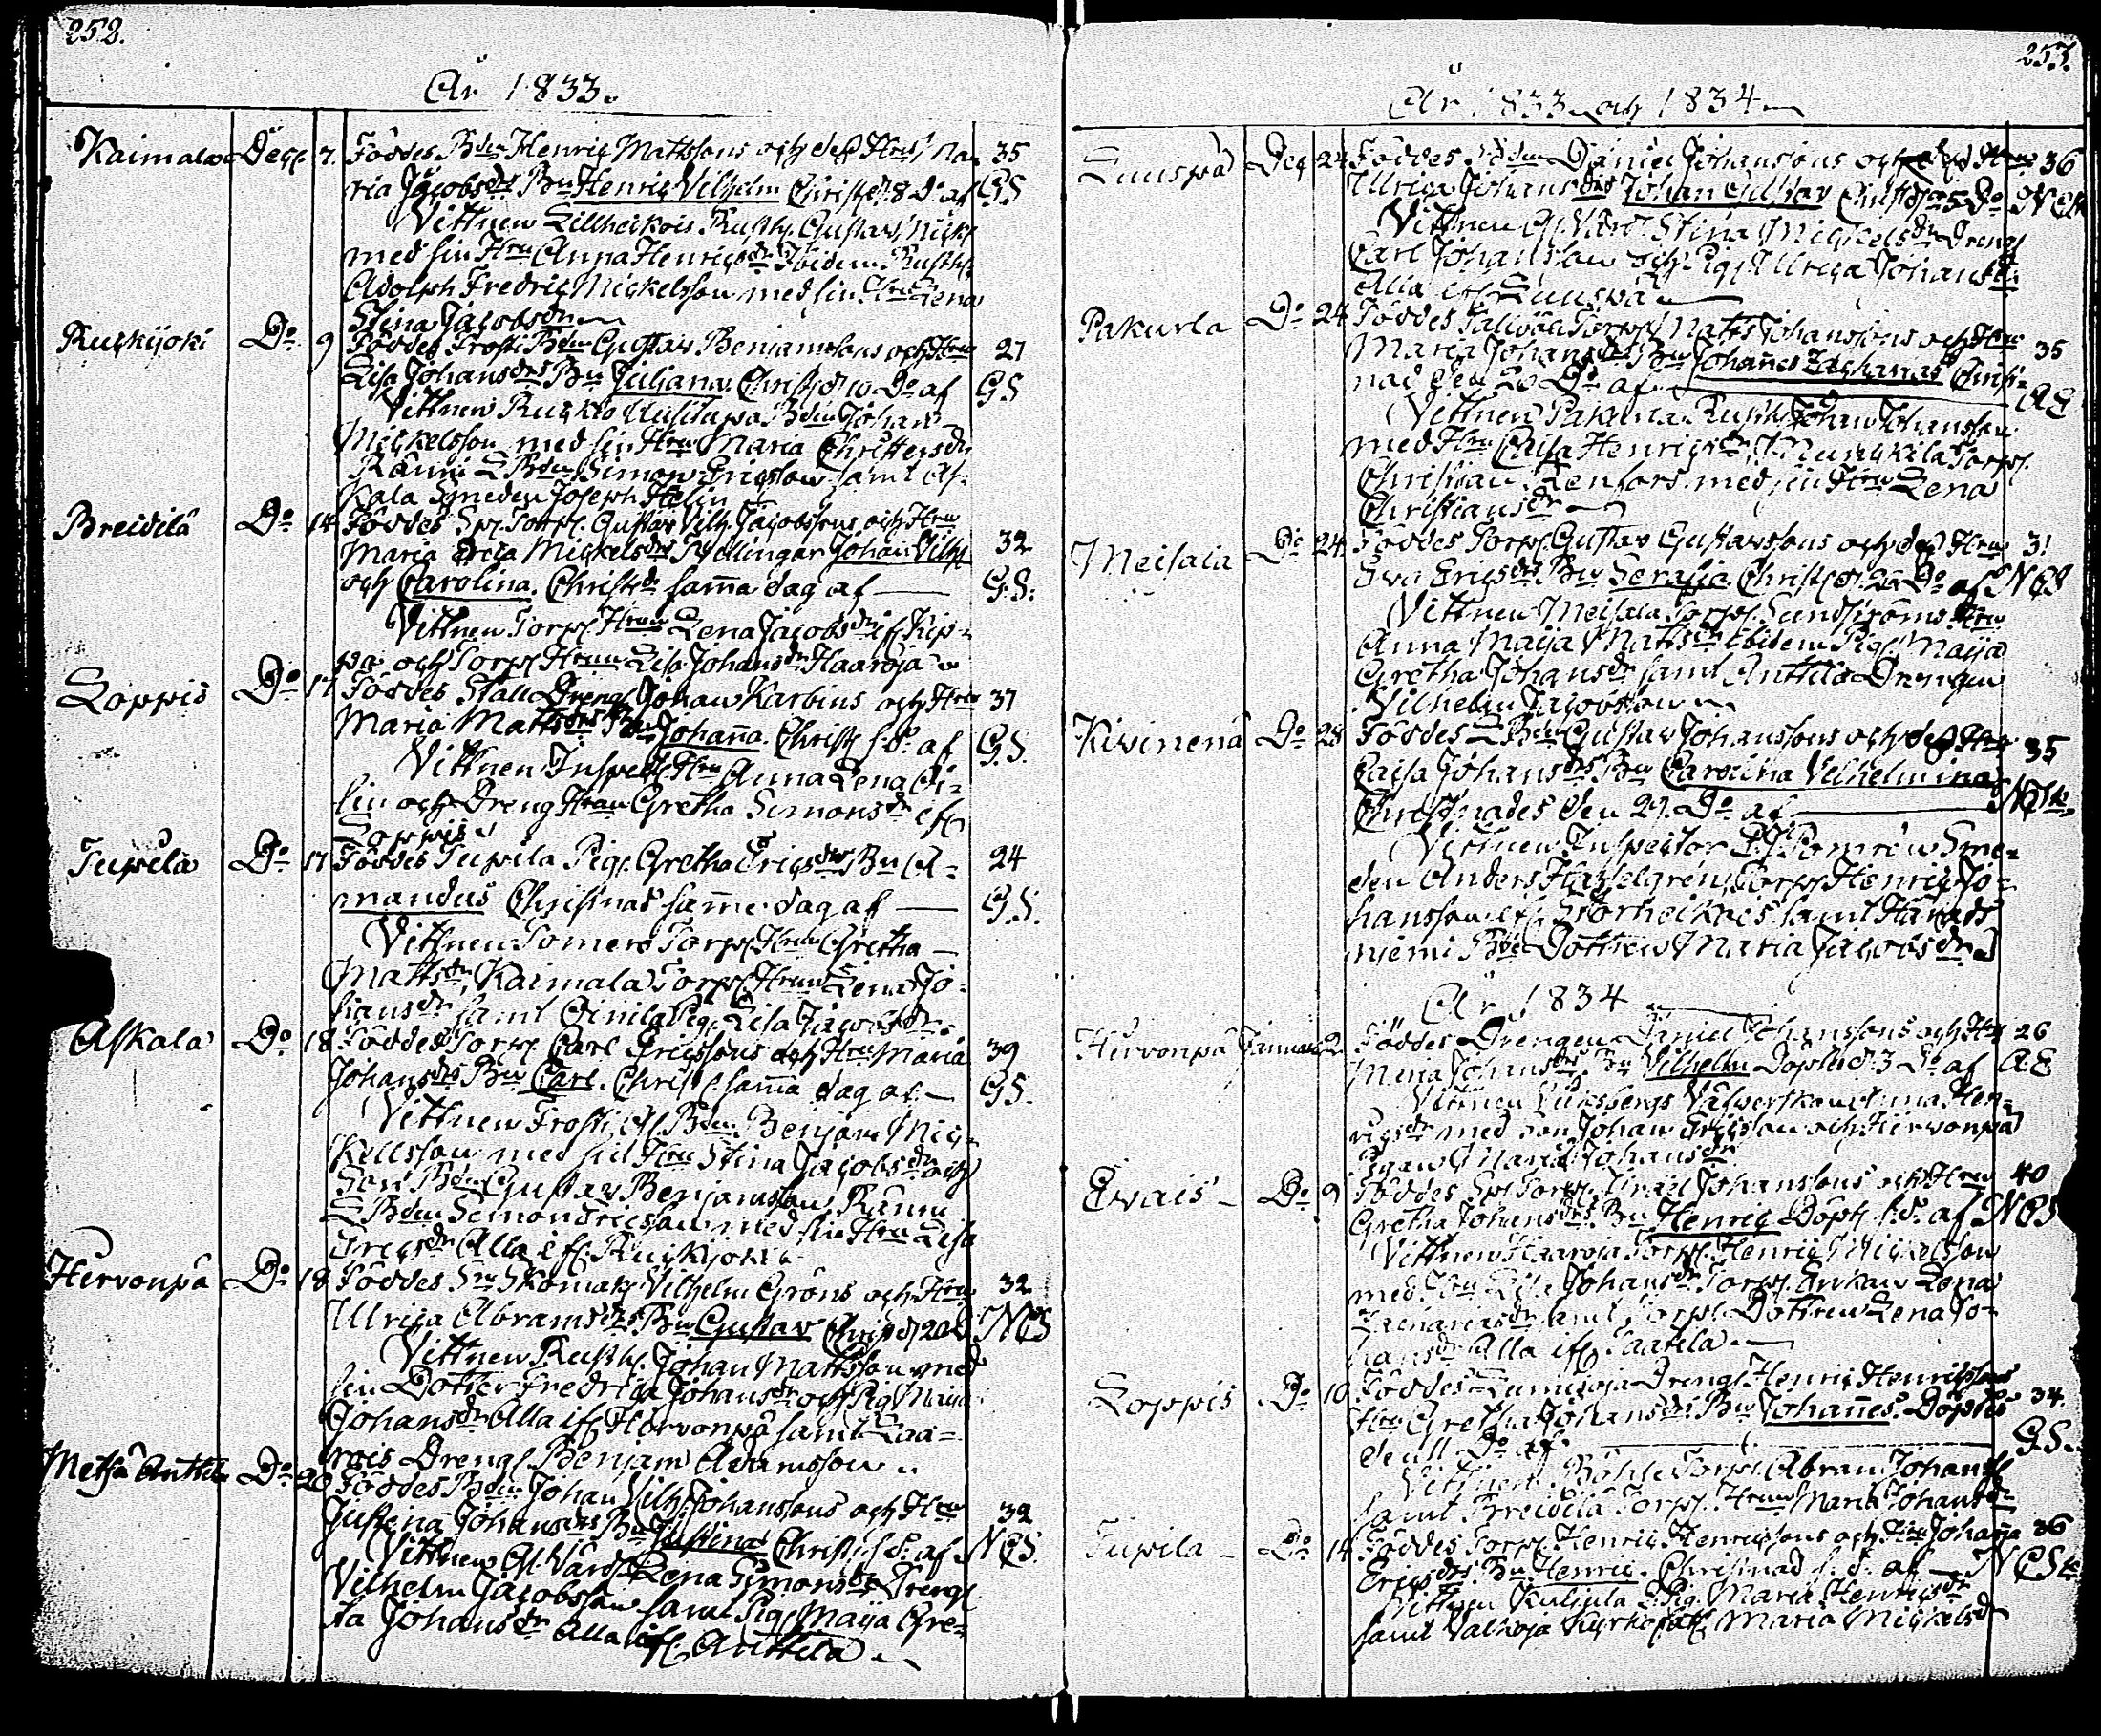 252.
År 1833.
Kaimala Dec. 7. Föddes Bden Henric Mattssons och dess Hru Ma- 35
ria Jacobsdrs Bn Henric Vilhelm Christ. d. 8 Do af GS
Vittnen Lillheikois Rusth. Gustaf Mick.
med sin Hru Anna Henricsdr Ibidem Rusth.
Adolph Fredric Mickelsson med sin Hru Lena
Stina Jacobsdr
Ruskijoki Do 9 Föddes Frosti Bden Gustav Benjamssons och Hru 27
Lisa Johansdrs Bn Juliana Christ. d. 10 Do af GS
Vittnen Bden Johan
Mickelsson med sin Hru Maria Christersdr
Rånni L. Bden Simon Ericsson samt As-
kala Smeden Joseph Helin
Breidilä Do 14 Föddes Spl. Torp. Gustav Vilh. Jacobssons och Hru
Maria Greta Mickelsdrs Tvillingar Johan Vilh. 32
och Carolina. Christ. samma dag af G.S.
Vittnen Torp. Hrun Lena Jacobsdr if. Kip-
pa och Torp. Hrun Lisa Johansdr Haaroja
Loppis Do 17 Föddes Stall Dreng. Johan Karbins och Hru 37
Maria Mattsdrs Bn Johanna. Christ. s.d. af G.S.
Vittnen Inspect. Hru Anna Lena
lin och Dreng Hrun Gretha Simonsdr if.
Loppis
Tupila Do 17 Föddes Tupila Pig. Gretha Ericsdrs Bn A- 24
mandus Christnas samme dag af G.S.
Vittnen Tomero Torp. Hrun Gretha
Mattsdr, Kaimala Torp. Hrun Lena Jo-
hansdr samt Pig. Lisa Jacobsdr
Askala Do 18 Föddes Torp. Carl Ericssons och Hru Maria 39
Johansdrs Bn Carl. Christ. samma dag af GS.
Vittnen Frosti Bden Benjam Mic-
kellsson med sin Hru Stina Jacobsdr och
Son Bden Gustav Benjamsson, Rånni
L Bden Simon Ericsson med sin Hru Lisa
Ericsdr Alla if. Ruskijoki
Hervonpä Do 18 Föddes Skomak. Vilhelm Gröns och Hru 32
Ulrica Abramsdrs Bn Gustav Christ. d. 20 NCS
Vittnen Rusth. Johan Mattsson med
sin Dotter Fredrica Johansdr och Pig Maija
Johansdr Alla if. Hervonpä samt Laa-
rois Dreng. Benjam Adamsson
Metsä Anttila Do 20 Föddes Bden Johan Vilh. Johanssons och Hru
Justina Johansdrs Bn Justina Christ. s.d. af 32 NCS.
Vittnen Lena Simonsdr Dreng
Vilhelm Jacobsson samt Pig. Maija Gre-
ta Johansdr Alla if. Anttila
253.
År 1833 och 1834
Lunspä Dec 24 Föddes Daniel Johanssons och dess Hru 36
Ulrica Johansdrs Johan Gustav Christ. d. 25 Do
Vittnen Stina Mickelsdr Dreng
Carl Johansson och Pig. Ulrica Johansdr
Alla if. Lunspä
Pakurla Do 24 Föddes Torp. Matts Johanssons och Hru
Maria Johansdrs Bn Johannes Zacharias Christ- 35
nad den 26 Do af AE
Vittnen Pakurla Rusth. Johan Johansson
med Hru Caisa Henricsdr, Torp.
Christian Tenfors med sin Hru Lena
Christiansdr
Meisala Do 24 Föddes Torp. Gustav Gustavssons och dess Hru 31
Eva Ericsdrs Bn Serafia Christ. d. 26 Do af NCS
Vittnen Meisala Torp. Sundströms Hru
Anna Maija Mattsdr Ibidem Pig. Maija
Gretha Johansdr samt Anttila Drengen
Vilhelm Jacobsson
Kivinenä Do 28 Föddes L Bden Gustav Johanssons och dess Hru 35
Caisa Johansdrs Bn Carolina Vilhelmina
Christnades den 29. Do af
Vittnen Inspector Sme-
den Anders Hasselgren, Torp. Henric Jo-
hansson if. Storheikois samt
niemi Bde Dottren Maria Jacobsdr
År 1834
Hervonpä Januari 2 Föddes Drengen Daniel Johanssons och Hru 26
Johansdrs Bn Vilhelm Döptes d. 3 Do af A.E
Vittnen Anna Hen-
ricsdr med son Johan Ericsson och Hervonpä
Pigan Maria Johansdr
Evais Do 9 Föddes Spl Torp. Israel Johanssons och Hru 40
Gretha Johansdrs Bn Henric Döpt. s.d. af NCS
Vittnen Haaroja Torp. Henric Mickelsson
med Hru Johansdr Torp. Enkan Lena
Zachariasdr samt Torp. Dottren Lena Jo-
hansdr Alla if. Saarela
Loppis Do 10 Föddes Dreng. Henric Henricssons
Hru Gretha Johansdrs Bn Johannes. Döptes 34.
den 11 Do af G.S.
Vittnen Böhle Torp. Abram Johans
samt Breidilä Torp. Hrun Maria Johansdr
Tupila Do 14 Föddes Torp. Henric Henricssons och Hru Johanna 36
Ericsdrs Bn Henric. Christnad s.d. af
Vittnen Pig. Maria Henricsdr
samt Maria Mickelsdr